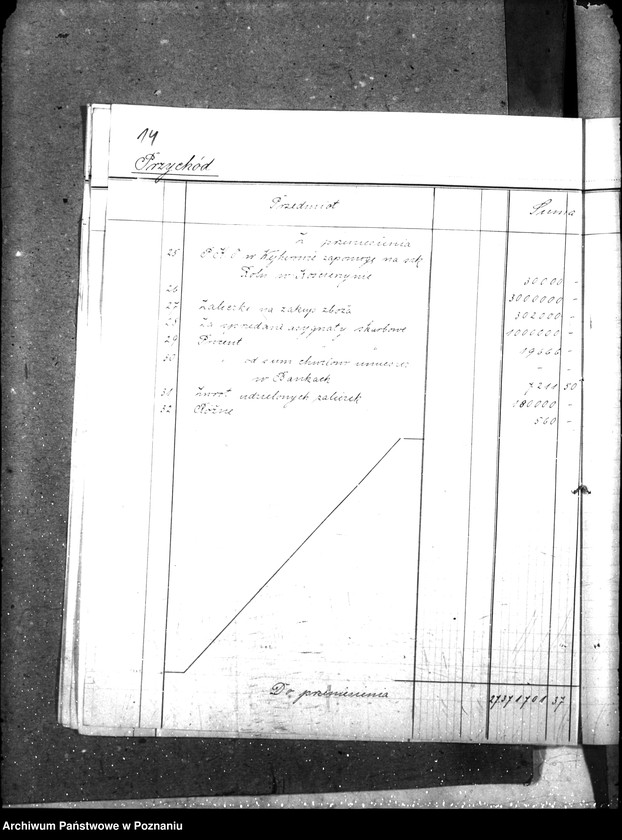 14
Przychód
Przedmiot Suma
Z przeniesienia
25 P.K.O w zapomogę na
Roln w Kościerzynie 30000 -
26 3000000 -
27 Zaliczki na zakup zboża 302000 -
28 Za sprzedane asygnaty skarbowe 1000000 -
29 Procent 19666 -
30 " od sum chwilowo umieszcz - -
w Bankach 7211 50
31 Zwrot udzielonych zaliczek 180000 -
32 Różne 560 -
Do przeniesienia 27371701 37
Archiwum Państwowe w Poznaniu